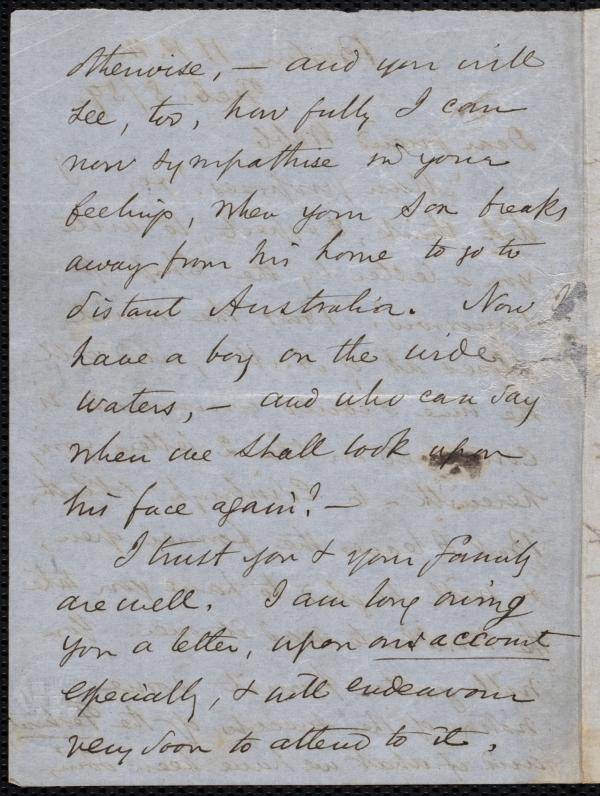 otherwise, — and you will
see, too, how fully I can
now sympathise in your
feelings, when your son breaks
away from his home to go to
distant Australia. Now I
have a boy on the wide
waters, — and who can say
when we shall look upon
his face again? —
I trust you & your family
are well. I am long owing
you a letter, upon one account
especially, & will endeavour
very soon to attend to it.